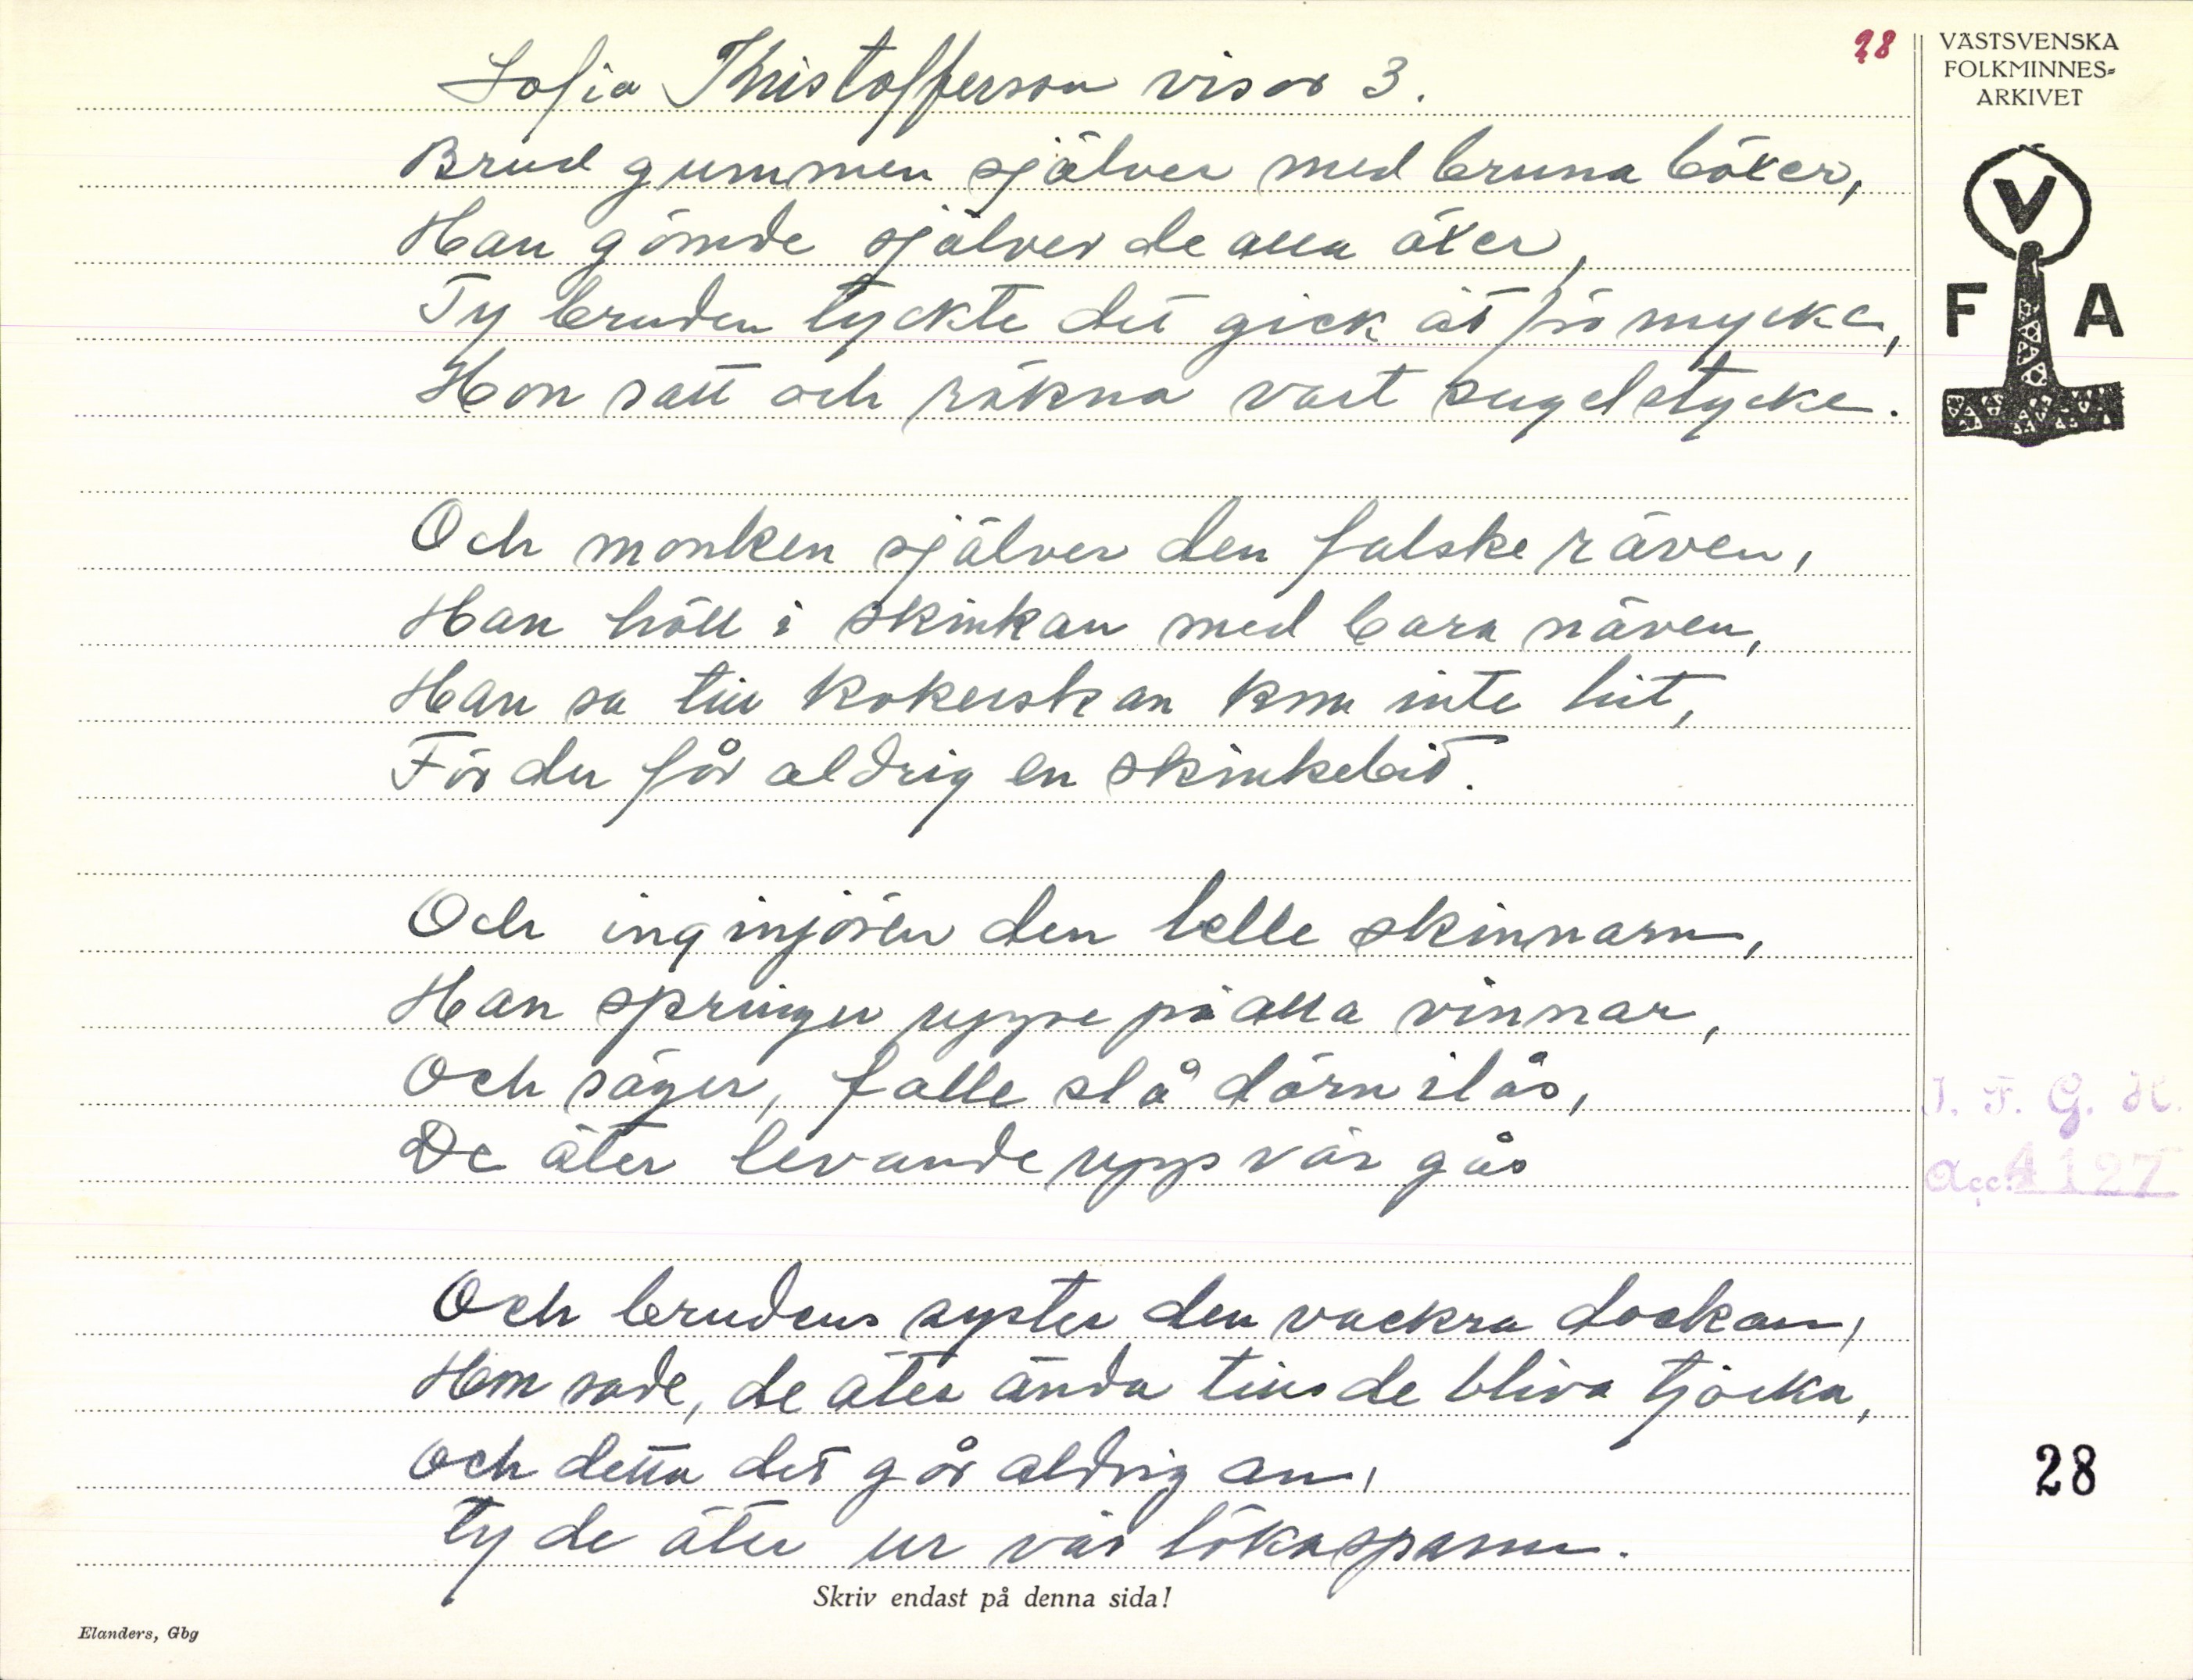 28
Sofia Kristofferson visor 3.
Brudgummen sjölver med bruna böxer,
Han gömde sjölver de alla öxer,
Ty bruden tyckte det gick åt så mycke,
Hon satt och räkna vart sugelstycke.
Och monken sjölver den falske räven,
Han höll i skinkan med bara näven,
Han sa till kokerskan kom inte hit,
För du får aldrig en skinkebit.
Och inginjören den lelle skinnarn,
Han springer uppe på alla vinnar,
Och säger, falle slå dörn i lås,
De äter levande upp vår gås
Och brudens syster den vackra dockan,
Hon sade, de äter ända tills de bliva tjocka,
Och detta det går aldrig an,
Ty de äter ur vår lökaspann.
Skriv endast på denna sida!
Elanders, Gbg
VÄSTSVENSKA
FOLKMINNES=
ARKIVET
V
F A
I. F. G. H.
Acc. 4127
28